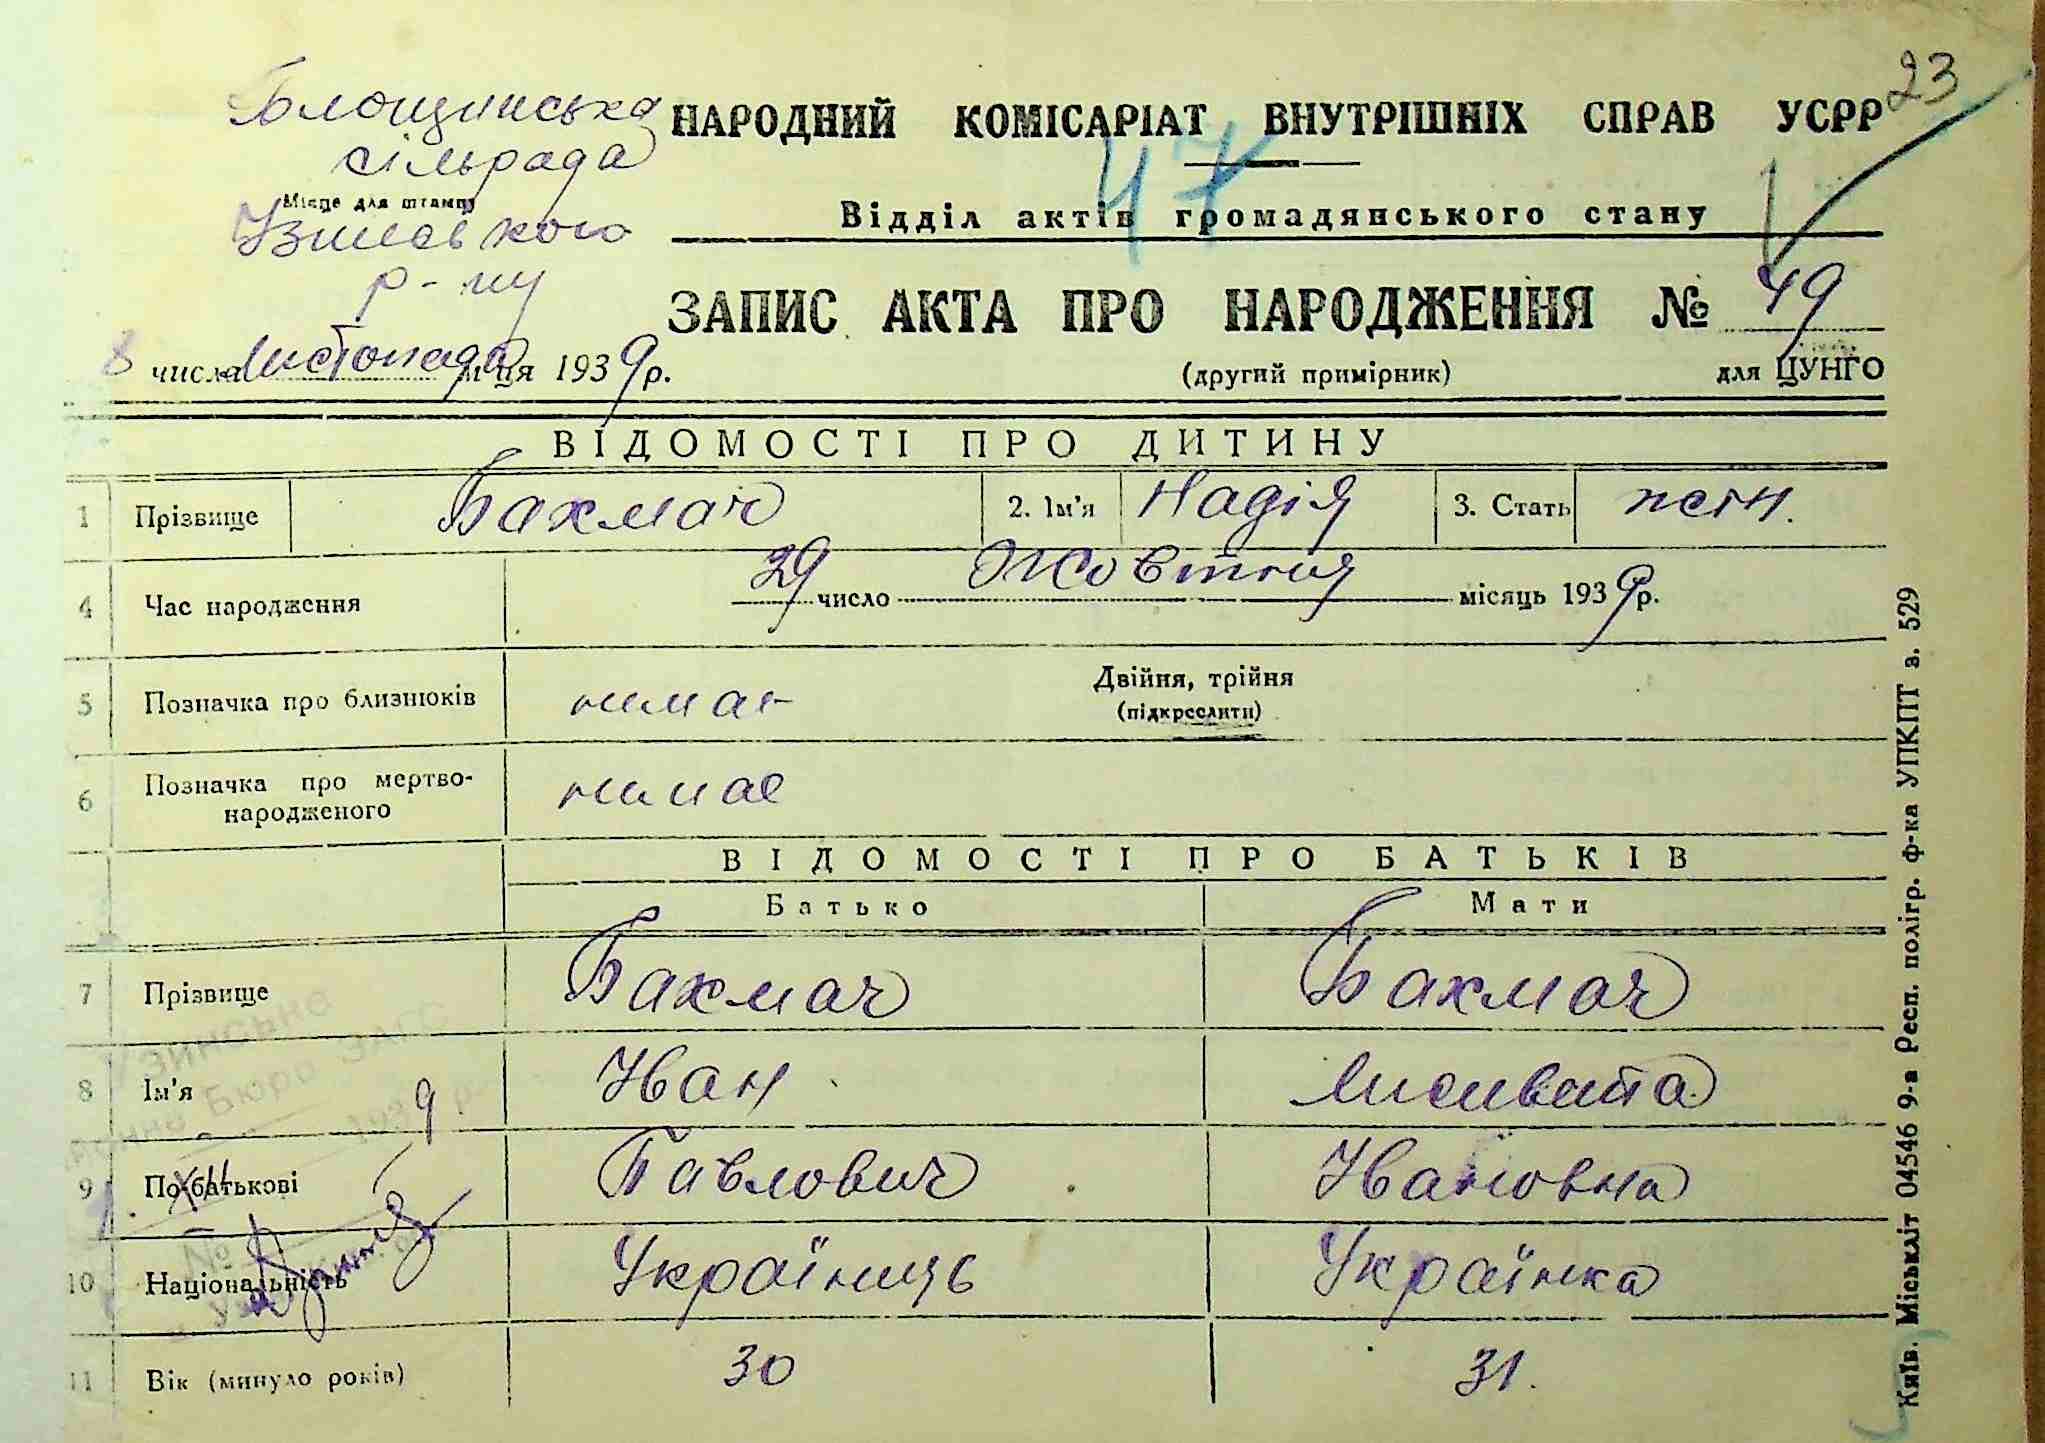 23
Блощинська
НАРОДНИЙ КОМІСАРІАТ ВНУТРІШНІХ СПРАВ УСРР
сільрада
47
Місце для штампу
Відділ актів громадянського стану
Узинського
р-ну
ЗАПИС АКТА ПРО НАРОДЖЕННЯ № 49
8 числа листопада м-ця 1939 р.
(другий примірник) для ЦУНГО
ВІДОМОСТІ ПРО ДИТИНУ
1 Прізвище Бахмач 2. Ім'я Надія 3. Стать жін.
4 Час народження 29 число Жовтня місяць 1939 р.
5 Позначка про близнюків немає Двійня, трійня
(підкреслити)
6 Позначка про мертво-
народженого немає
ВІДОМОСТІ ПРО БАТЬКІВ
Батько Мати
7 Прізвище Бахмач Бахмач
8 Ім'я Іван Лисивита
9 По-батькові Павлович Івановна
10 Національність Українець Українка
11 Вік (минуло років) 30 31.
Узинське
Бюро ЗАГС
1939 р.
XII
№
Київ. Міськліт 04546 9-а Респ. полігр. ф-ка УПКПТ з. 529